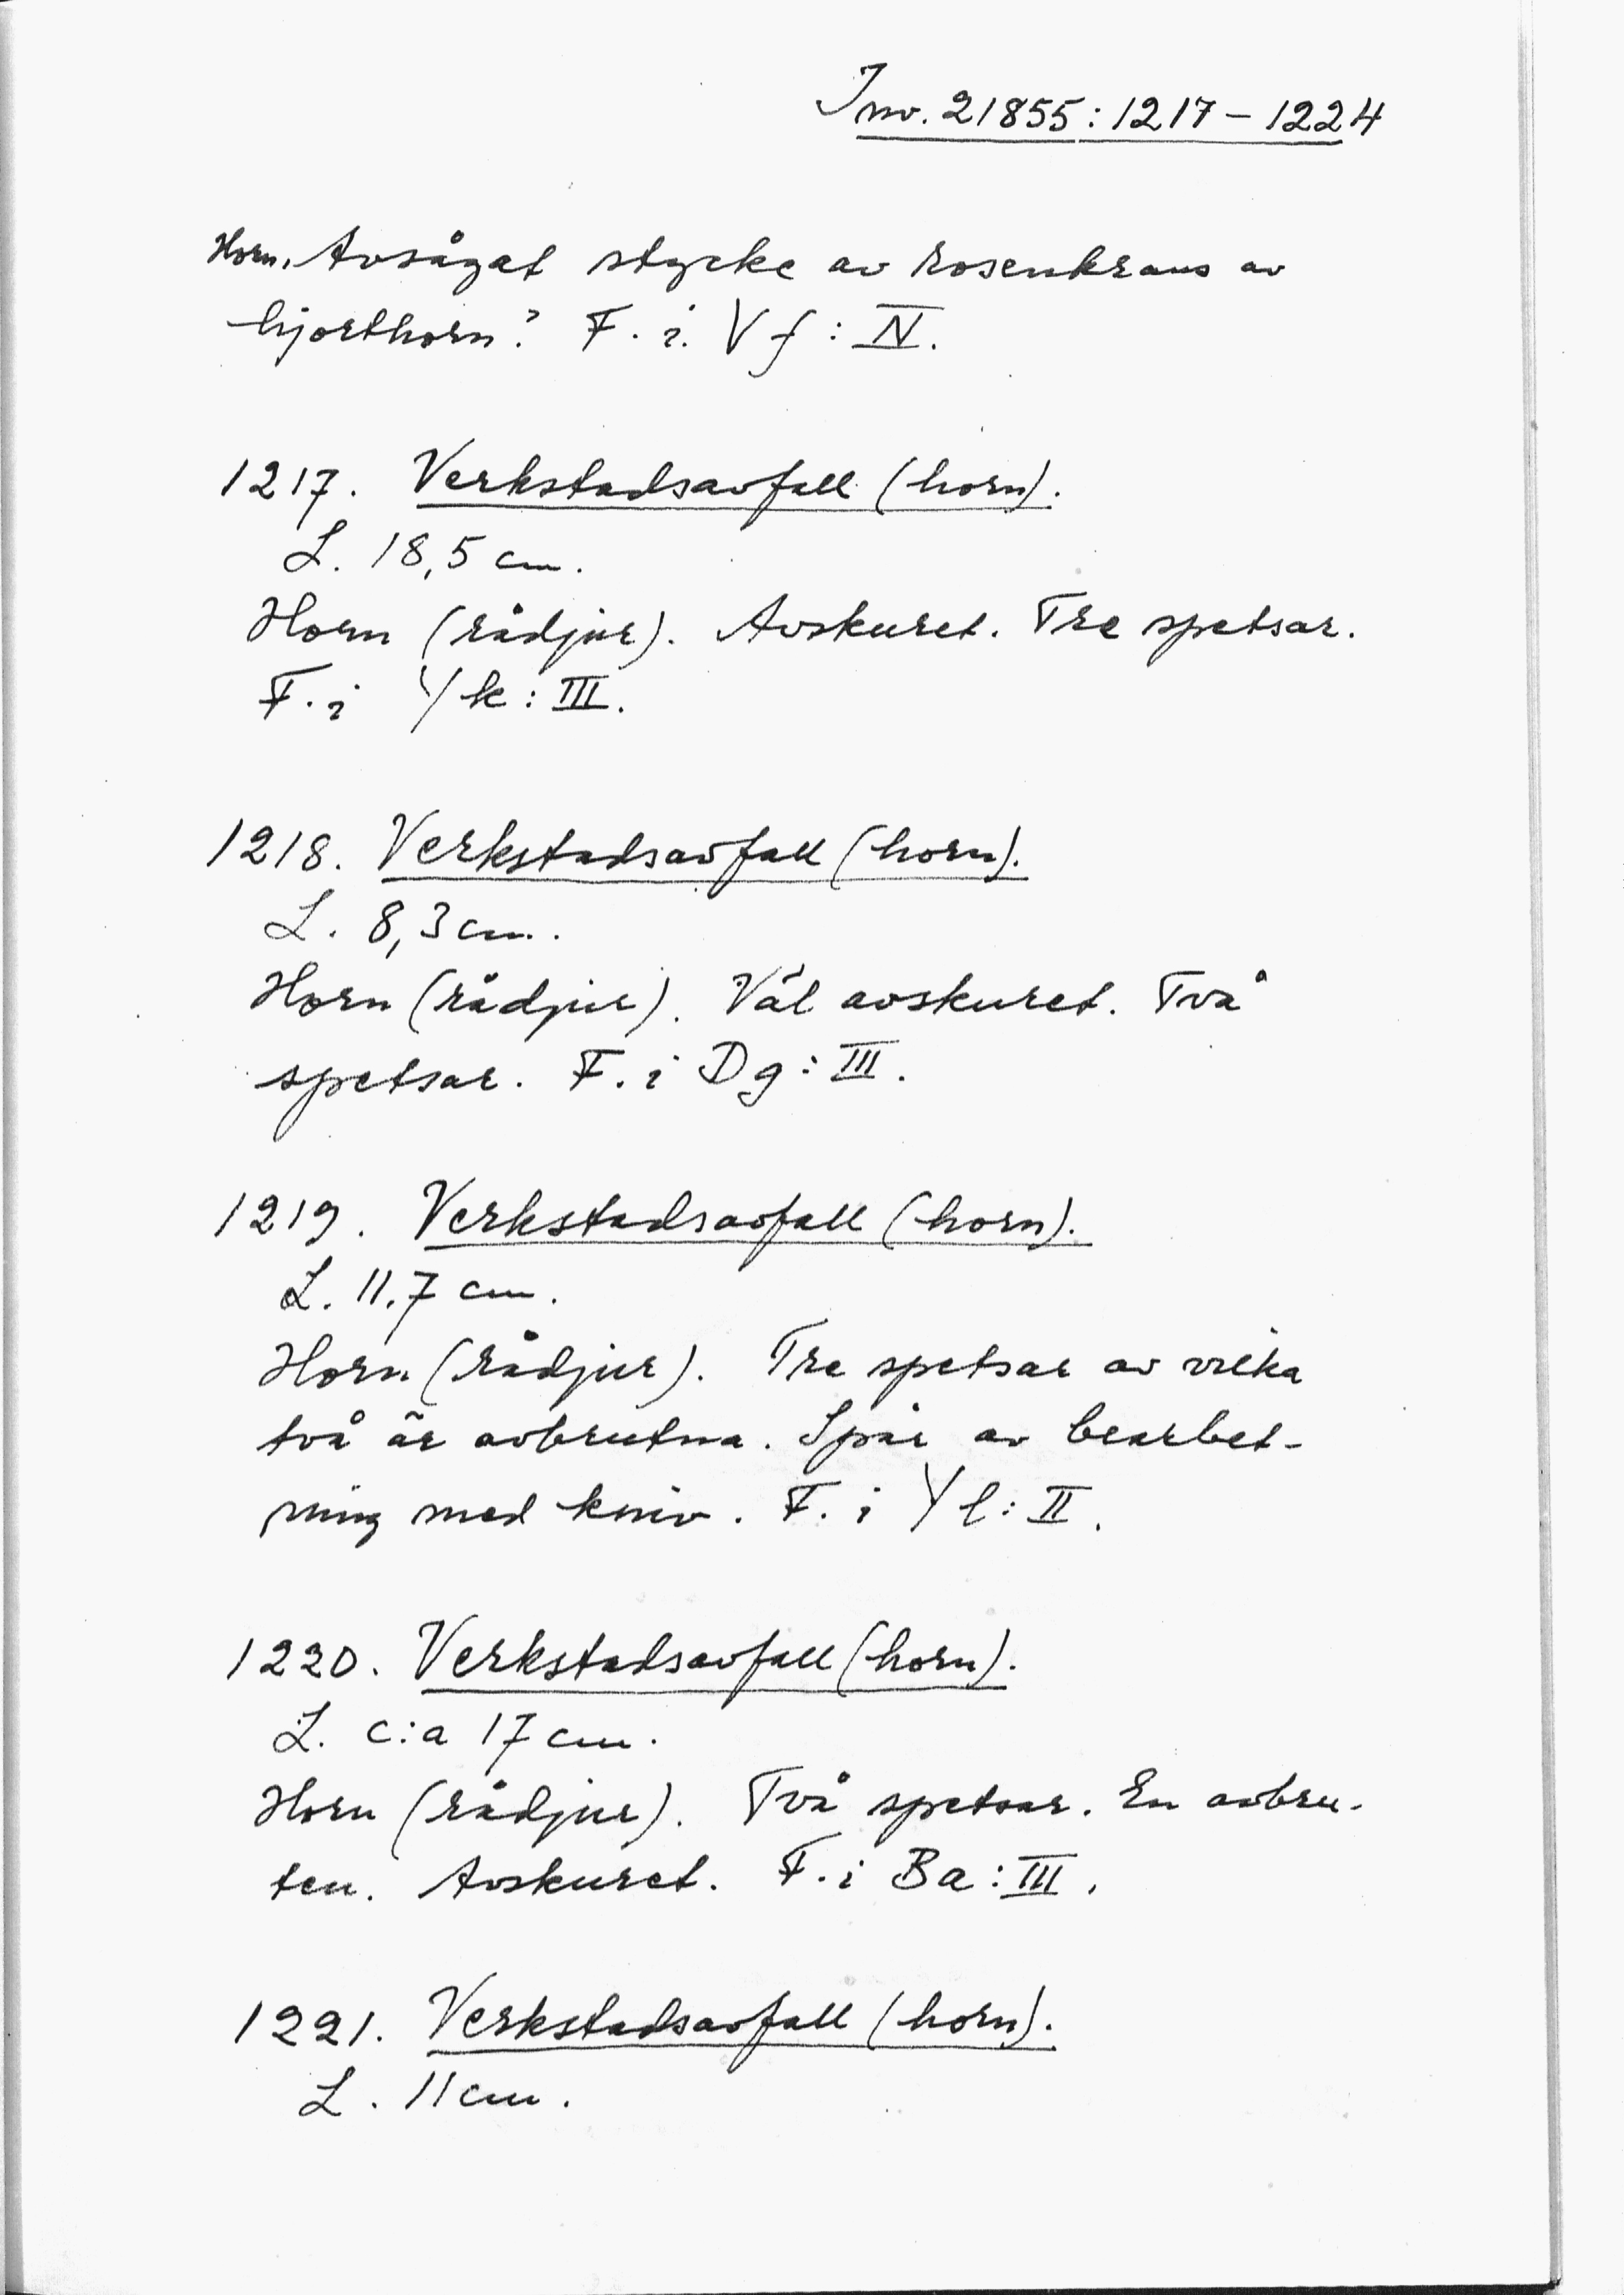 Inv. 21855:1217-1224
Horn. Avsågat stycke av rosenkrans av
hjorthorn? F. i. Vf: IV.
1217. Verkstadsavfall (horn).
L. 18,5 cm.
Horn (rådjur). Avskuret. Tre spetsar.
F. i Yk: III.
1218. Verkstadsavfall (horn).
L. 8,3 cm.
Horn (rådjur). Väl avskuret. Två
spetsar. F. i Dg: III.
1219. Verkstadsavfall (horn).
L. 11,7 cm.
Horn (rådjur). Tre spetsar av vilka
två är avbrutna. Spår av bearbet-
ning med kniv. F. i Yl: II.
1220. Verkstadsavfall (horn).
L. c:a 17 cm.
Horn (rådjur). Två spetsar. En avbru-
ten. Avskuret. F. i Ba: III.
1221. Verkstadsavfall (horn).
L. 11 cm.